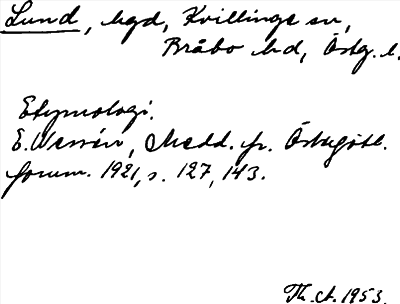 Lund, bgd, Kvillinge sn,
Bråbo hd, Östg. l.
Etymologi.
E. Wessén, Medd. fr. Östergötl.
fornm. 1921, s. 127, 143.
Th. A. 1953.